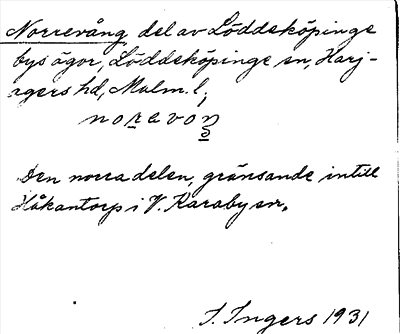 Norrevång del av Löddeköpinge
bys ägor, Löddeköpinge sn, Harj-
agers hd, Malm. l;
Den norra delen, gränsande intill
Håkantorp i V. Karaby sn.
I. Ingers 1931